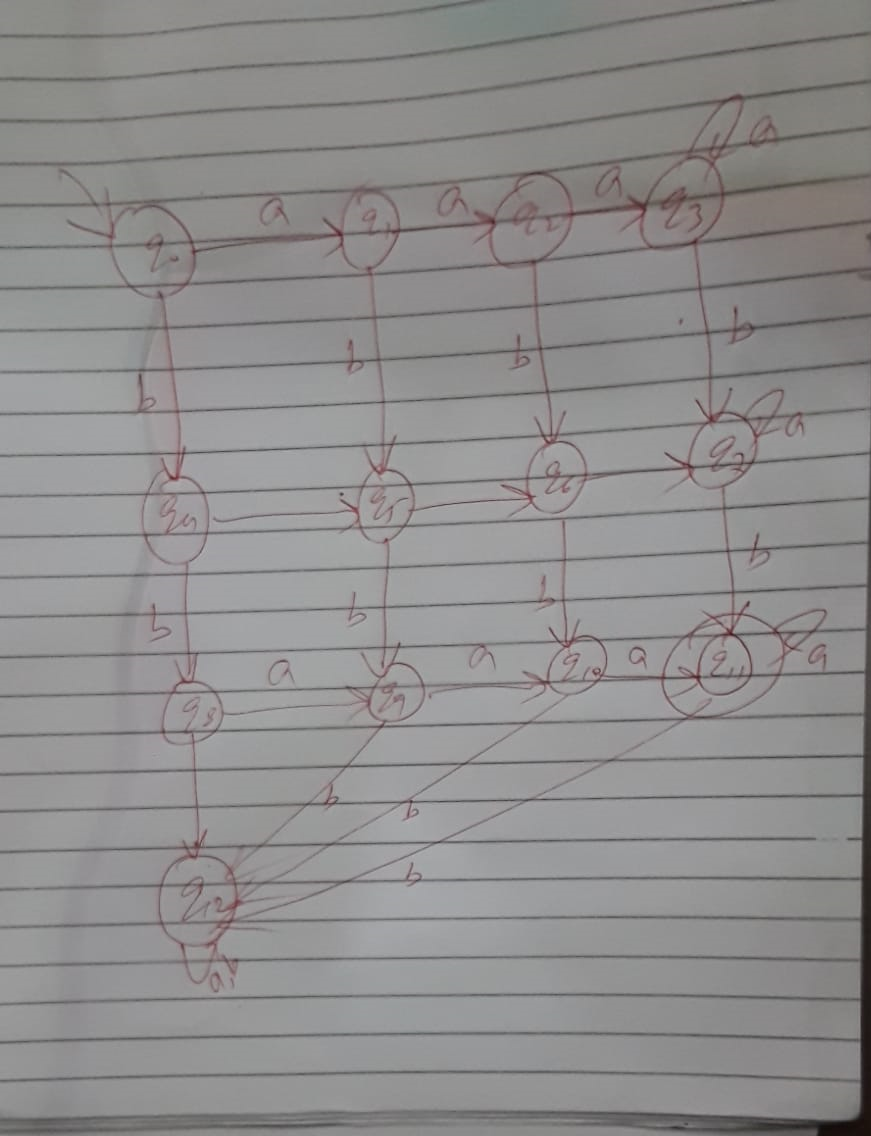 a
q0 a q1 a q2 a q3
b b b b
q4 q5 q6 q7 a
b b b b
q8 a q9 a q10 a q11 a
b b b
q12
a